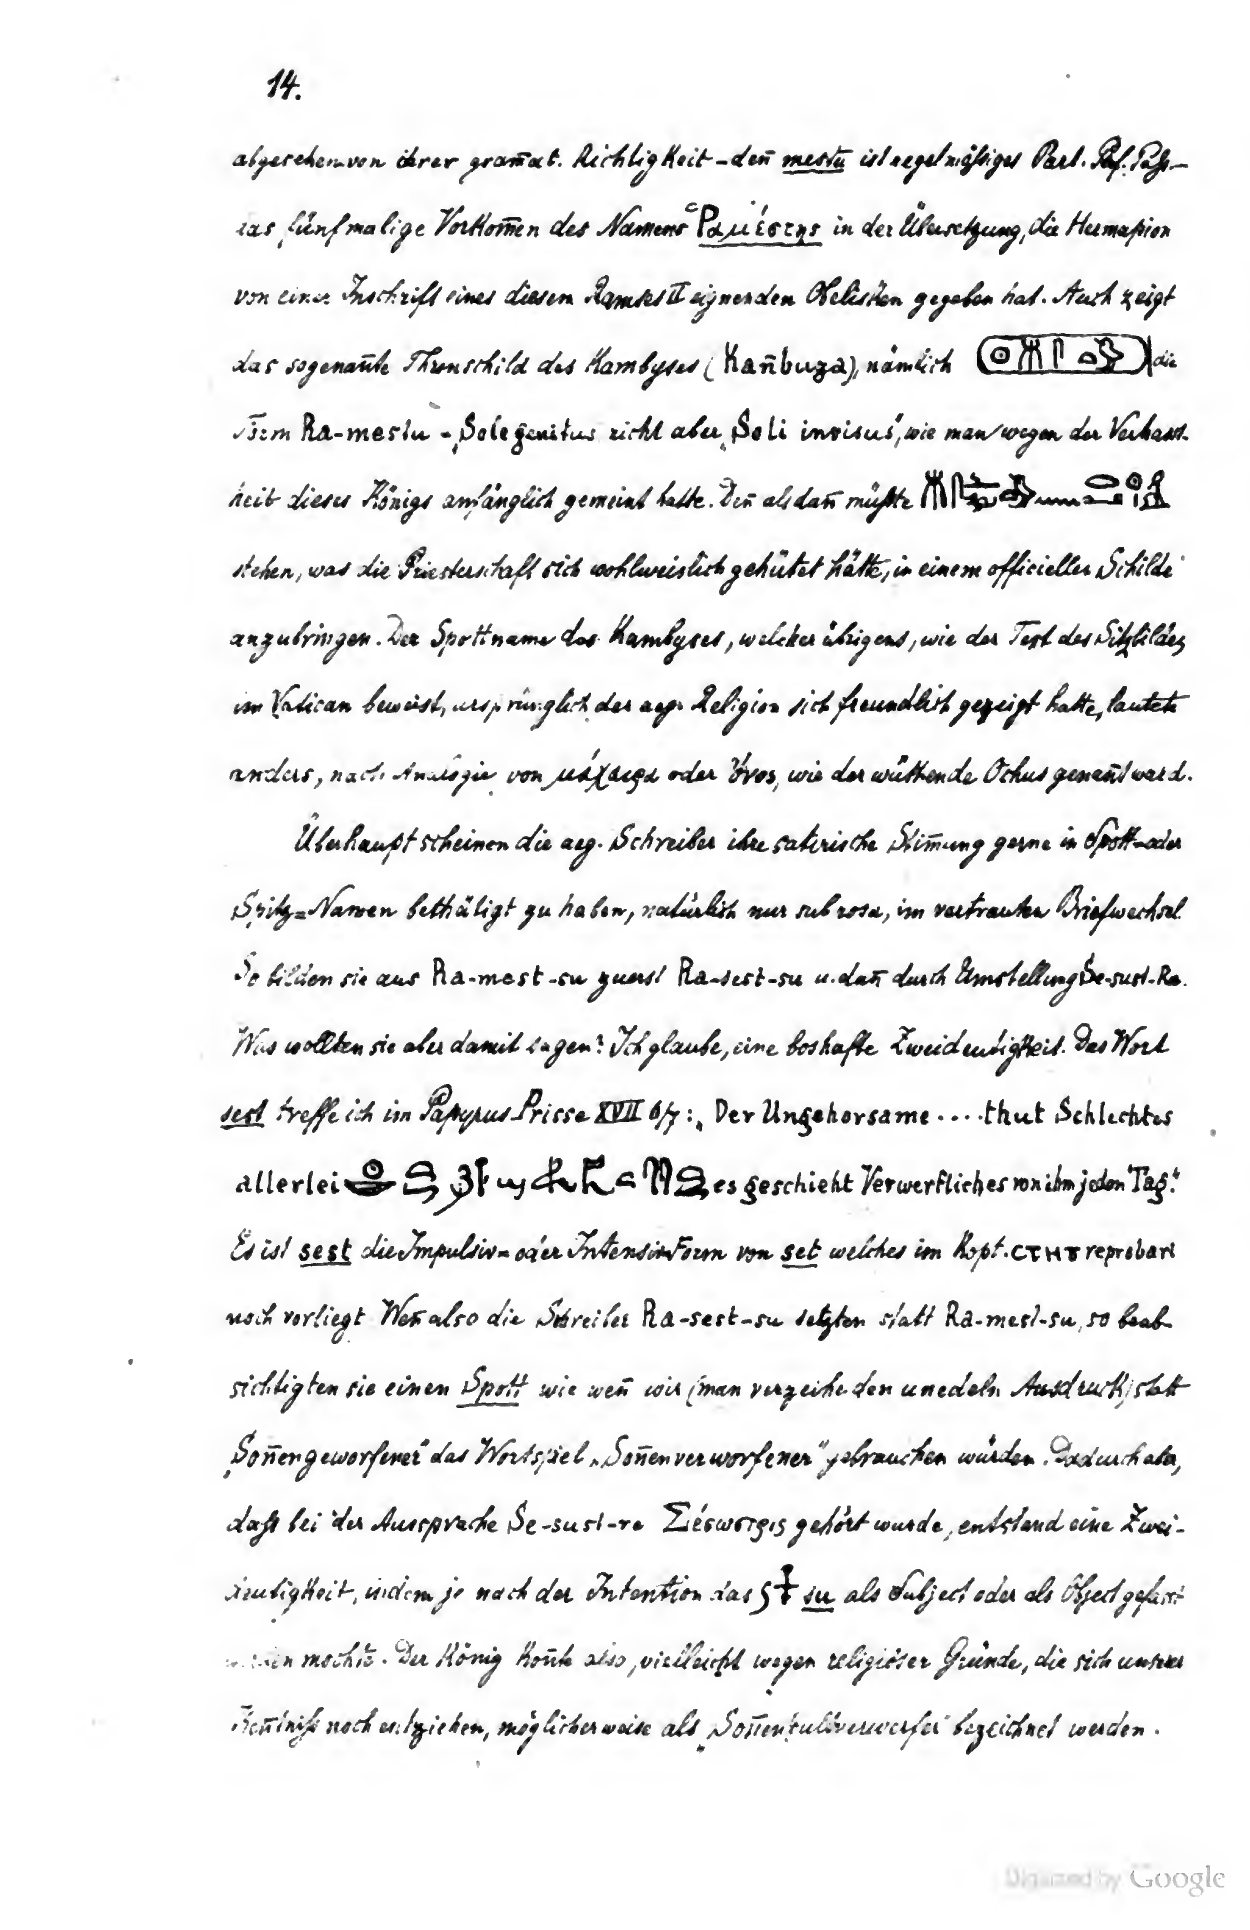 14.
abgesehen von ihrer gram̄at. Richtigkeit – den̄ mestu ist regelmäßiges Part. Perf. Pass. –
das fünfmalige Vorkom̄en des Namens Ῥαμέστης in der Übersetzung, die Hermapion
von einer Inschrift eines diesem Ramses II eignenden Obelisken gegeben hat. Auch zeigt
das sogenan̄te Thronschild des Kambyses (Kan̄buza), nämlich die
Form Ra-mestu - „Sole genitus nicht aber „Soli invisus", wie man wegen der Verhasst-
heit dieses Königs anfänglich gemeint hatte. Den̄ alsdan̄ müßte
stehen, was die Priesterschaft sich wohlweislich gehütet hätte, in einem officiellen Schilde
anzubringen. Der Spottname des Kambyses, welcher übrigens, wie der Text des Sitzbildes
im Vatican beweist, ursprünglich der aeg. Religion sich freundlich gezeigt hatte, lautete
anders, nach Analogie von μάχαιρα oder ὄνος, wie der wüthende Ochus genan̄t ward.
Überhaupt scheinen die aeg. Schreiber ihre satirische Stim̄ung gerne in Spott- oder
Spitz=Namen bethätigt zu haben, natürlich nur sub rosa, im vertrauten Briefwechsel.
So bilden sie aus Ra-mest-su zuerst Ra-sest-su u. dan̄ durch Umstellung Se-sust-Ra.
Was wollten sie aber damit sagen? Ich glaube, eine boshafte Zweideutigkeit. Das Wort
sest treffe ich im Papyrus Prisse XVII 6/7: „Der Ungehorsame . . . . thut Schlechtes
allerlei es geschieht Verwerfliches von ihm jeden Tag."
Es ist sest die Impulsiv= oder Intensiv-Form von set welches im Kopt. ⲥⲧⲏⲧ reprobari
noch vorliegt. Wen̄ also die Schreiber Ra-sest-su setzten statt Ra-mest-su, so beab-
sichtigten sie einen Spott wie wen̄ wir (man verzeihe den unedeln Ausdruck) statt
„Son̄engeworfener" das Wortspiel „Son̄enverworfener" gebrauchen würden. Dadurch aber,
daß bei der Aussprache Se-sust-re Σέσωστρις gehört wurde, entstand eine Zwei-
deutigkeit, indem je nach der Intention das su als Subject oder als Object gefasst
werden mochte. Der König kon̄te also, vielleicht wegen religiöser Gründe, die sich unserer
Ken̄tniß noch entziehen, möglicherweise als „Son̄enkultverwerfer" bezeichnet werden.
Digitized by Google